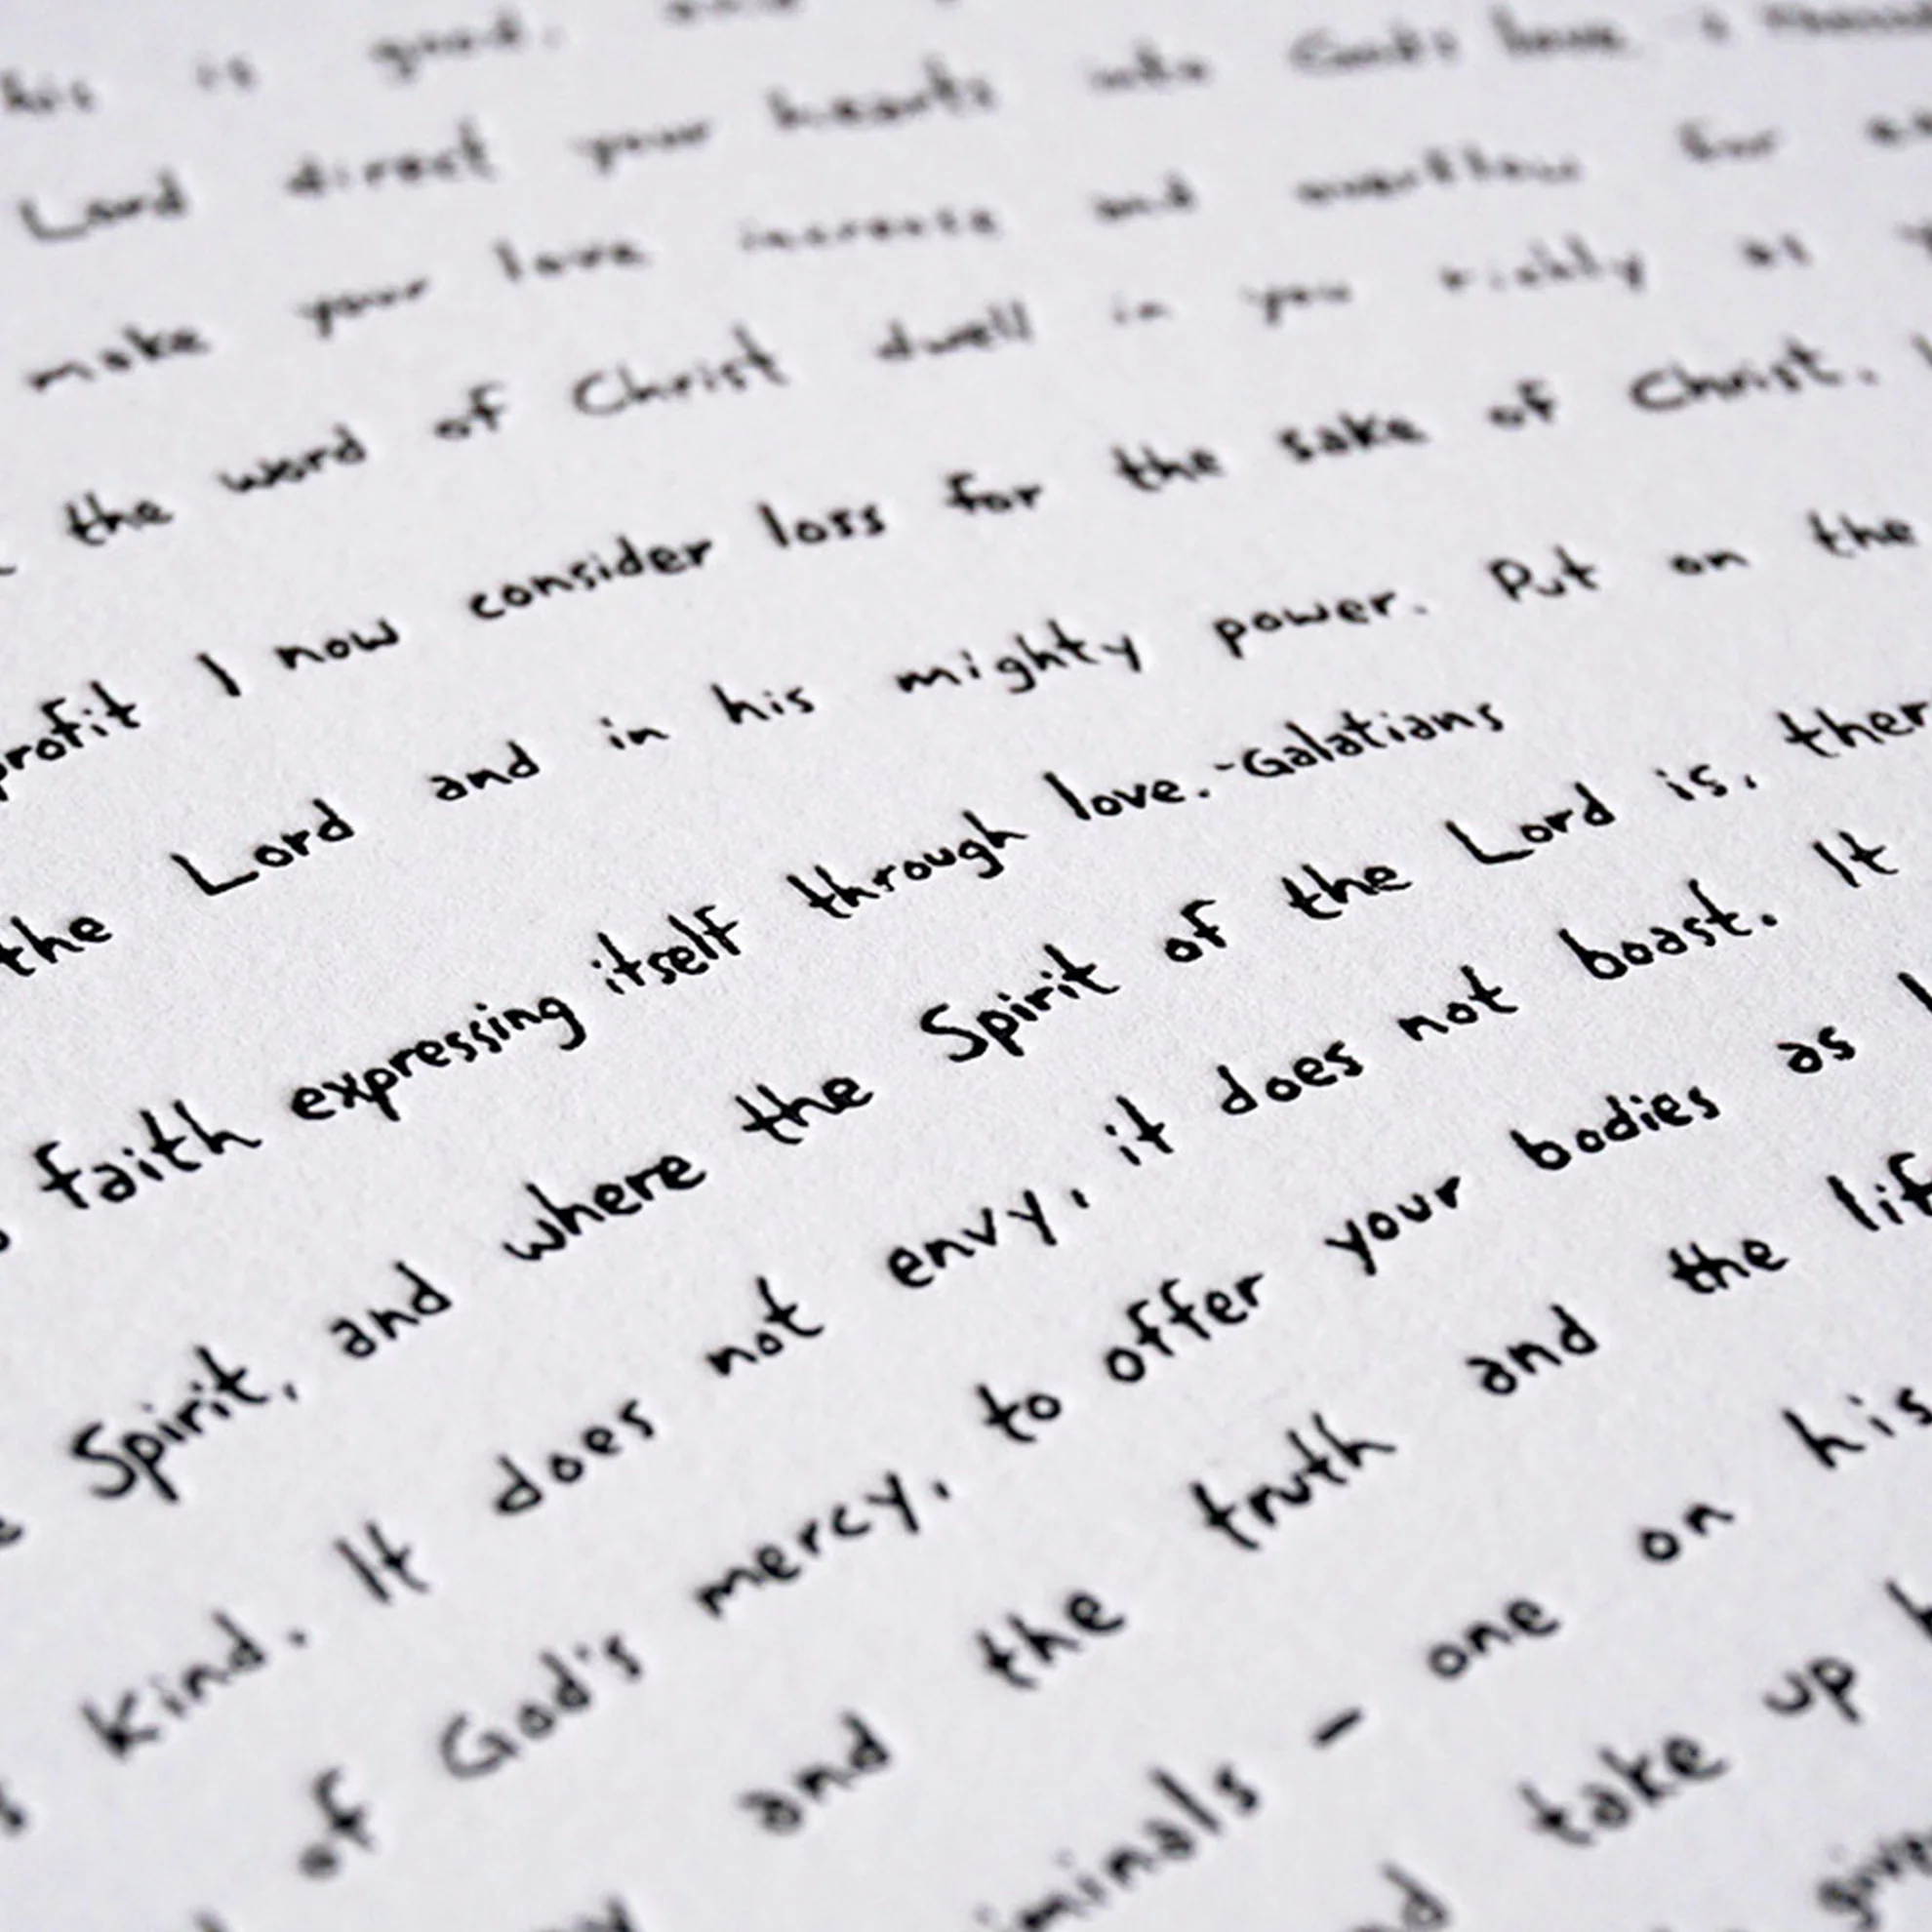 his is good.
Lord direct your hearts into God's love
make your love increase and overflow for
the word of Christ dwell in you richly as
profit I now consider loss for the sake of Christ.
the Lord and in his mighty power. Put on the
faith expressing itself through love. -Galatians
Spirit, and where the Spirit of the Lord is, ther
kind. It does not envy, it does not boast. It
of God's mercy, to offer your bodies as
and the truth and the lif
iminals - one on his
take up